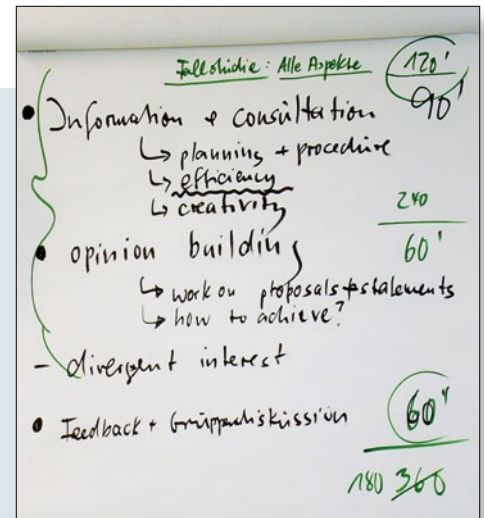 Fallstudie: Alle Aspekte 120'
• Information + consultation 90'
↳ planning + procedure
↳ efficiency
↳ creativity
240
• opinion building 60'
↳ work on proposals + statements
↳ how to achieve?
- divergent interest
• Feedback + Gruppendiskussion 60'
180 360